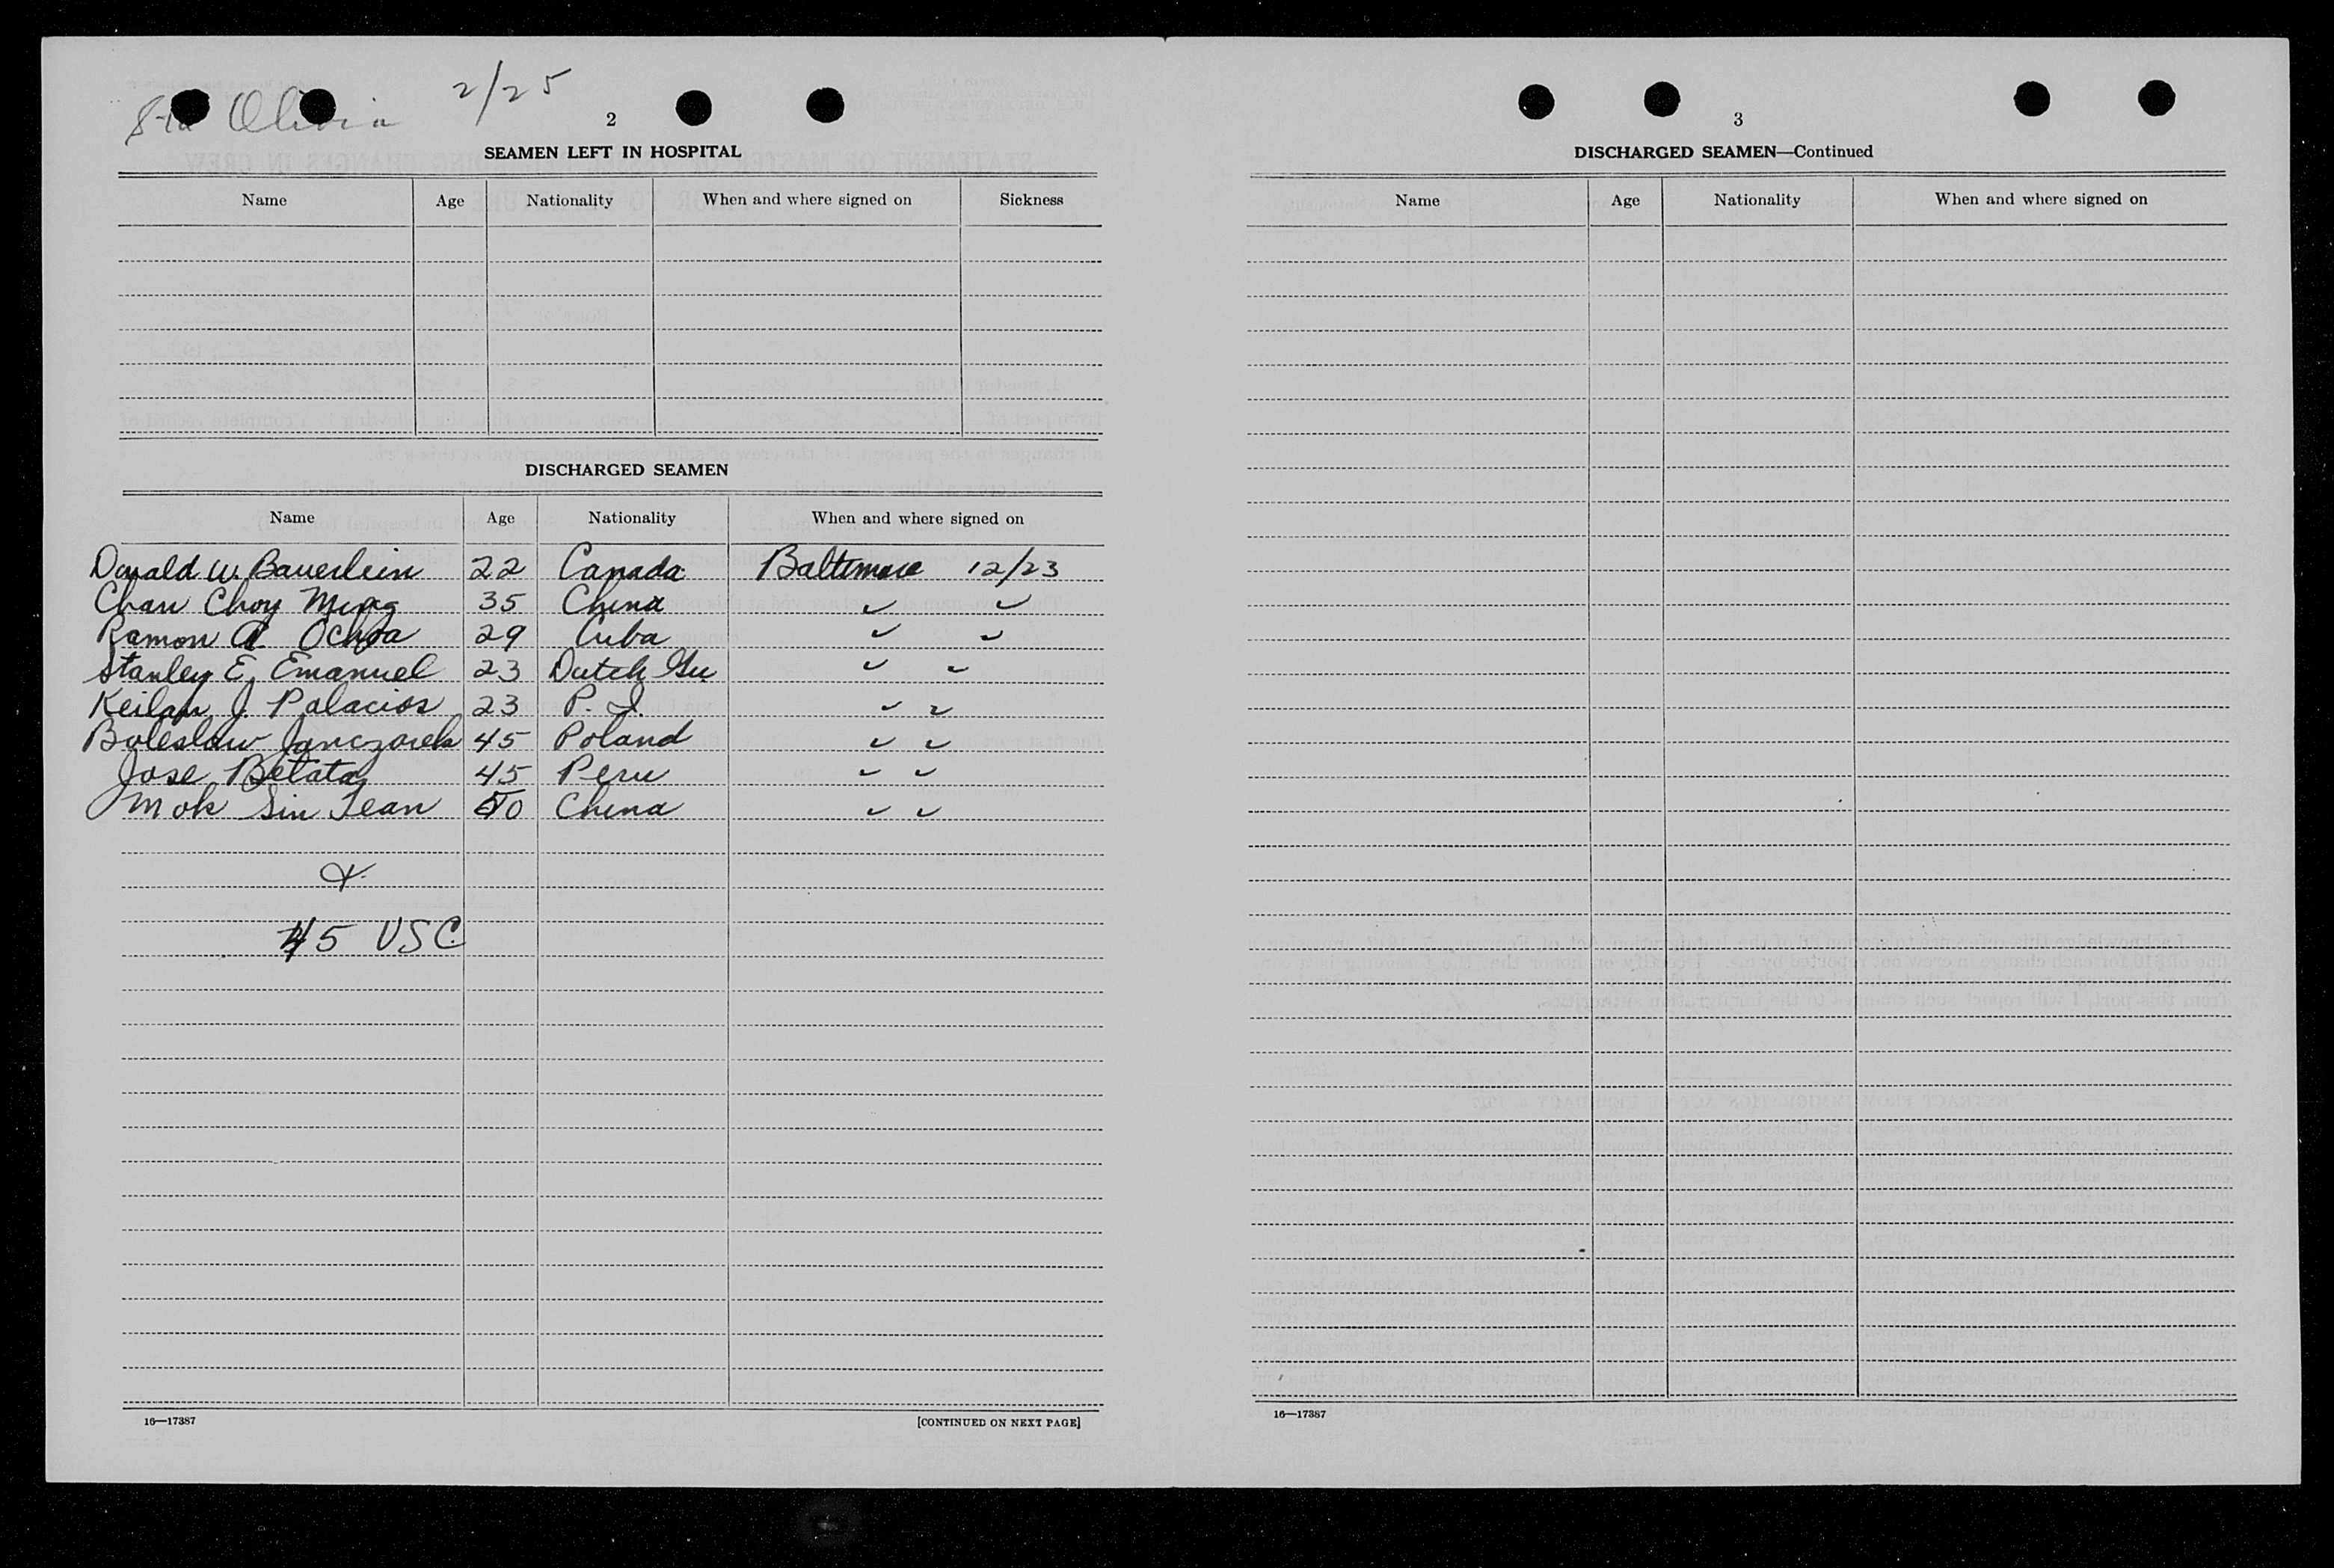 Sta Olivia 2/25
2
SEAMEN LEFT IN HOSPITAL
Name Age Nationality When and where signed on Sickness
DISCHARGED SEAMEN
Name Age Nationality When and where signed on
Donald W. Bauerlein 22 Canada Baltimore 12/23
Chan Choy Ming 35 China ✓ ✓
Ramon A. Ochoa 29 Cuba ✓ ✓
Stanley E. Emanuel 23 Dutch Gu ✓ ✓
Keilan J. Palacios 23 P. I. ✓ ✓
Boleslaw Janczarek 45 Poland ✓ ✓
Jose Betata 45 Peru ✓ ✓
Mok Sin Tean 50 China ✓ ✓
&
45 USC
16—17387 [CONTINUED ON NEXT PAGE]
3
DISCHARGED SEAMEN—Continued
Name Age Nationality When and where signed on
16—17387